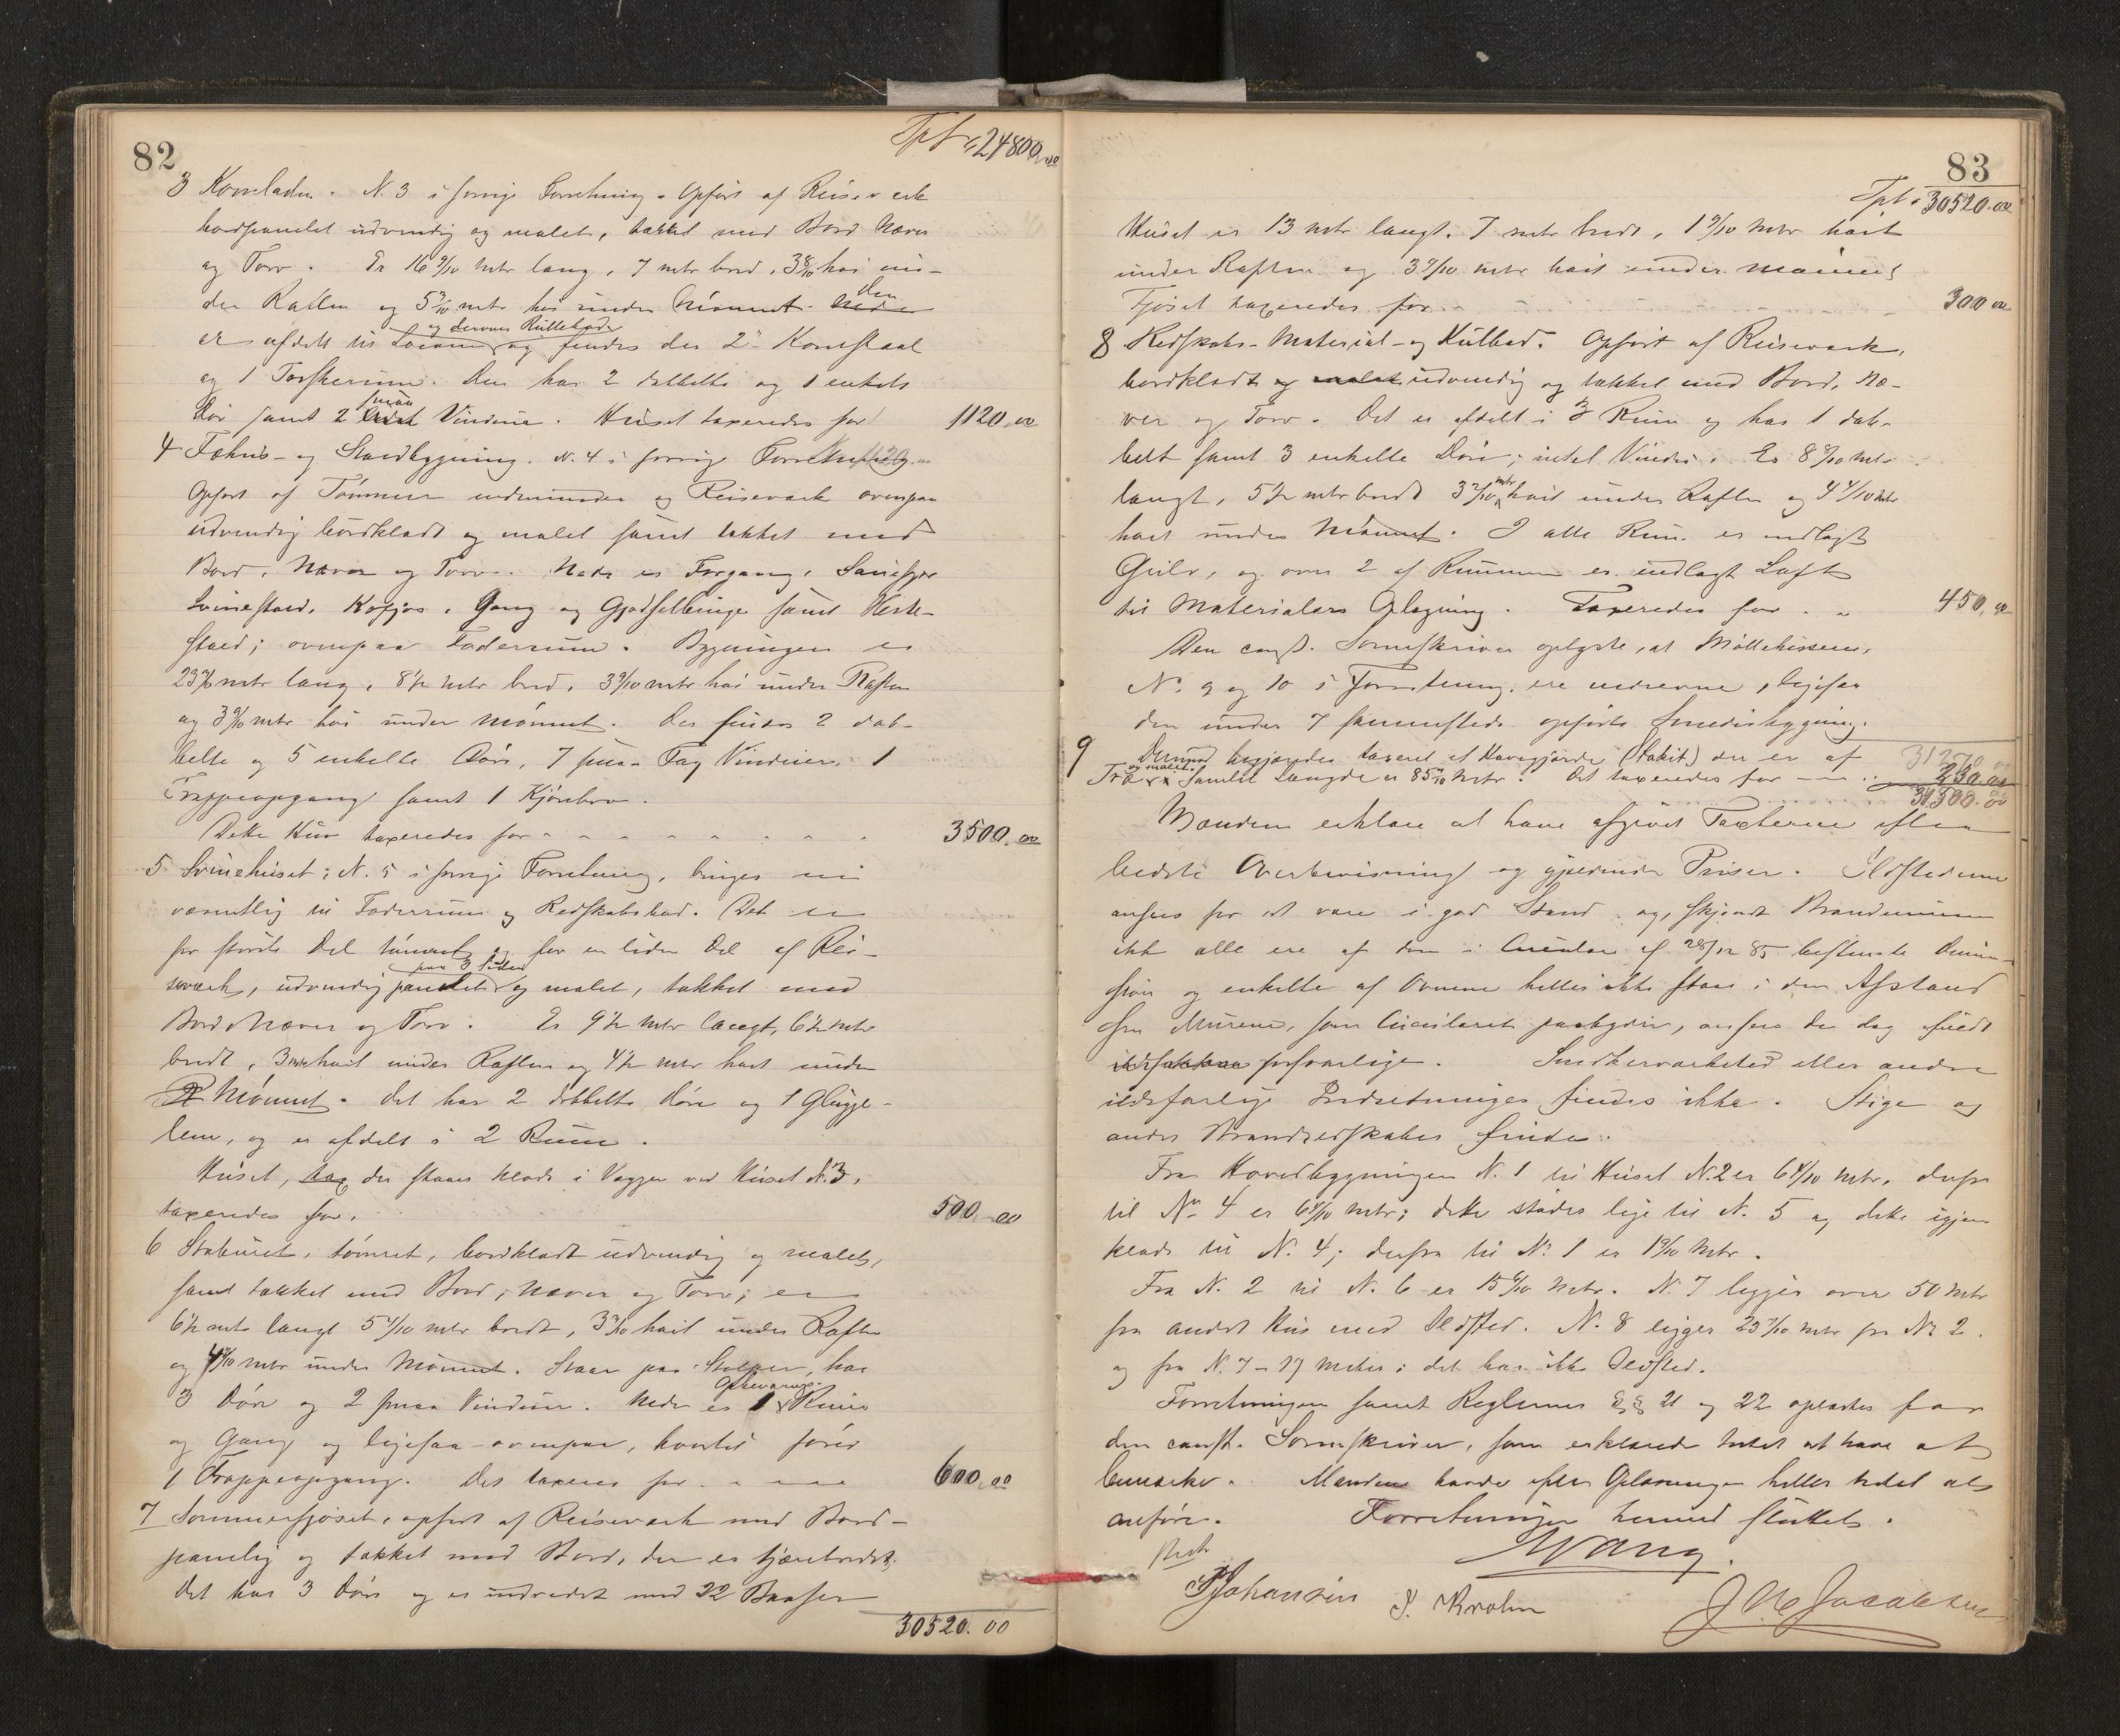 82
Tpt 24800,00
3 Kornladen. N. 3 i forrige Forretning. Opført af Reisverk
bordpanelet udvendig og malet, tækket med Bord Næver
og Torv. Er 16 9/10 mtr lang, 7 mtr bred, 3 8/10 høi un-
der Raften og 5 mtr høi under Mønnet. Den
er afdelt til og dennes Rullebod og findes der 2 Kornstaal
og 1 Tærskerum. Den har 2 dobbelte og 1 enkelt
Dør samt 2 smaa Vinduer. Huset taxeredes for 1120,00
4 Fæhus- og Staldbygning. N. 4 i forrige Forretning.
Opført af Tømmer nedenunder og Reisverk ovenpaa
udvendig bordklædt og malet samt tækket med
Bord, Næver og Torv. Nede er Forgang, Sauefjøs
Svinestald, Kofjøs, Gang og Gjødselbinge samt Heste-
stald; ovenpaa Foderrum. Bygningen er
23 mtr lang, 8 1/2 mtr bred, 3 9/10 mtr høi under Raften
og 3 9/10 mtr høi under Mønnet. Der findes 2 dob-
belte og 5 enkelte Døre, 7 smaa Fag Vinduer, 1
Trappeopgang samt 1 Kjørebro.
Dette Hus taxeredes for 3500,00
5 Svinehuset; N. 5 i forrige Forretning, bruges nu
væsentlig til Foderrum og Redskabsbod. Det er
for største Del tømret og for en liden Del af Rei-
sværk, udvendig panelet paa 3 Sider og malet, tækket med
Bord Næver og Torv. Er 9 1/2 mtr langt, 6 1/2 mtr
bredt, 3 mtr høit under Raften og 4 1/2 mtr høit under
Mønnet. Det har 2 dobbelte Døre og 1 Glugge-
lem, og er afdelt i 2 Rum.
Huset, der staar klods i Væggen ved Huset N. 3,
taxeredes for. 500,00
6 Staburet, tømret, bordklædt udvendig og malet,
samt tækket med Bord, Næver og Torv; er
6 1/2 mtr langt 5 1/10 mtr bredt, 3 høit under Raften
og 4 mtr under Mønnet. Staar paa Stolper, har
3 Døre og 2 smaa Vinduer. Nede er 1 Opbevarings- Rum
og Gang og ligesaa ovenpaa, hvortil fører
1 Trappeopgang. Det taxeres for 600,00
7 Sommerfjøset, opført af Reisværk med Bord-
paneling og tækket med Bord, der er tjærebredt.
Det har 3 Døre og er indredet med 22 Baaser
30520.00
83
Tpt. 30520.00
Huset er 13 mtr langt. 7 mtr bredt, 1 9/10 mtr høit
under Raften og 3 9/10 mtr høit under Mønnet
Fjøset taxeredes for 300 00
8 Redskabs- Material- og Kulbod. Opført af Reisværk,
bordklædt udvendig og tækket med Bord, Næ-
ver og Torv. Det er afdelt i 3 Rum og har 1 dob-
belt samt 3 enkelte Døre; intet Vindu. Er 8 mtr
langt, 5 1/2 mtr bredt 3 mtr høit under Raften og 4 4/10 mtr
høit under Mønnet. I alle Rum er indlagt
Gulv, og over 2 af Rummene er indlagt Loft
til Materialers Oplægning. Taxeredes for 450,00
Den const. Sorenskriver oplyste, at Møllehusene,
No. 9 og 10 i Forretning, ere nedrevne, ligesaa
den under 7 sammesteds opførte Smedebygning.
9 Derimod begjæredes taxeret et Havegjærde (Stakit) der er af
Træ og malet. Samlet Længde er 85 mtr. Det taxeredes for 230.00
31270 00
31500.00
Mændene erklære at have afgivet Taxterne efter
bedste Overbevisning og gjældende Priser. Ildstederne
ansees for at være i god Stand og, skjøndt Brandmurene
ikke alle ere af den i Circulær af 28/12 85 bestemte Dimen-
sion og enkelte af Ovnene heller ikke staar i den Afstand
fra Murene, som Circulæret paabyder, ansees de dog fuldt
forsvarlige. Snedkerværksted eller andre
ildsfarlige Indretninger findes ikke. Stige og
andre Brandredskaber findes.
Fra Hovedbygningen N. 1 til Huset N. 2 er 6 4/10 mtr. derfra
til No 4 er 6 mtr; dette støder lige til N. 5 og dette igjen
klods til N. 4; derfra til No 1 er 19 mtr.
Fra N. 2 til N. 6 er 15 mtr. N. 7 ligger over 50 mtr
fra andet Hus med Ildsted. N. 8 ligger 23 mtr fra No 2.
og fra N. 7 - 17 meter; det har ikke Ildsted.
Forretningen samt Reglernes §§ 21 og 22 oplæstes for
den const. Sorenskriver, som erklærede Intet at have at
bemærke. Mændene havde efter Oplæsningen heller Intet at
anføre. Forretningen hermed sluttet.
Wang.
Johansen P. Krohn J M Jacobsen